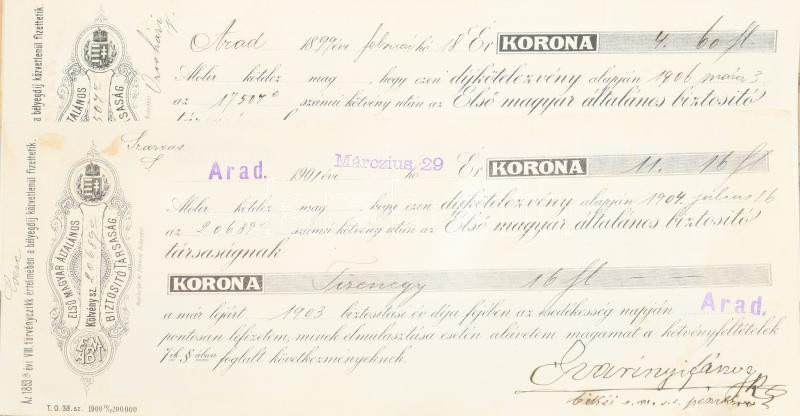 Arad 1899 évi február hó 18 Ér KORONA 4. 60 ft.
Alolir kötelez mag , hogy ezen díjkötelezvény alapján 1906 márcz 3
az 17507 számú kötvény után az Első magyar általános biztosító
a bélyegdíj közvetlenül fizettetik.
Szarvas
Arad. 1901 évi Márczius 29 hó Ér KORONA 11. 16 ft
Alolir kötelez mag , hogy ezen díjkötelezvény alapján 1904. július 16
az 20689 számú kötvény után az Első magyar általános biztosító
társaságnak
KORONA Tizenegy 16 ft — —
a már lejárt 1903 biztosítási év díja fejében az esedékesség napján Arad.
pontosan lefizetem, minek elmulasztása esetén alávetem magamat a kötvényfeltételek
7ik §-ában foglalt következményeknek.
ELSŐ MAGYAR ÁLTALÁNOS
Kötvény sz. 20689
BIZTOSITÓ TÁRSASÁG
Az 1883-ik évi VIII. törvényczikk értelmében a bélyegdíj közvetlenül fizettetik.
T. O. 38. sz. 1900 200.000